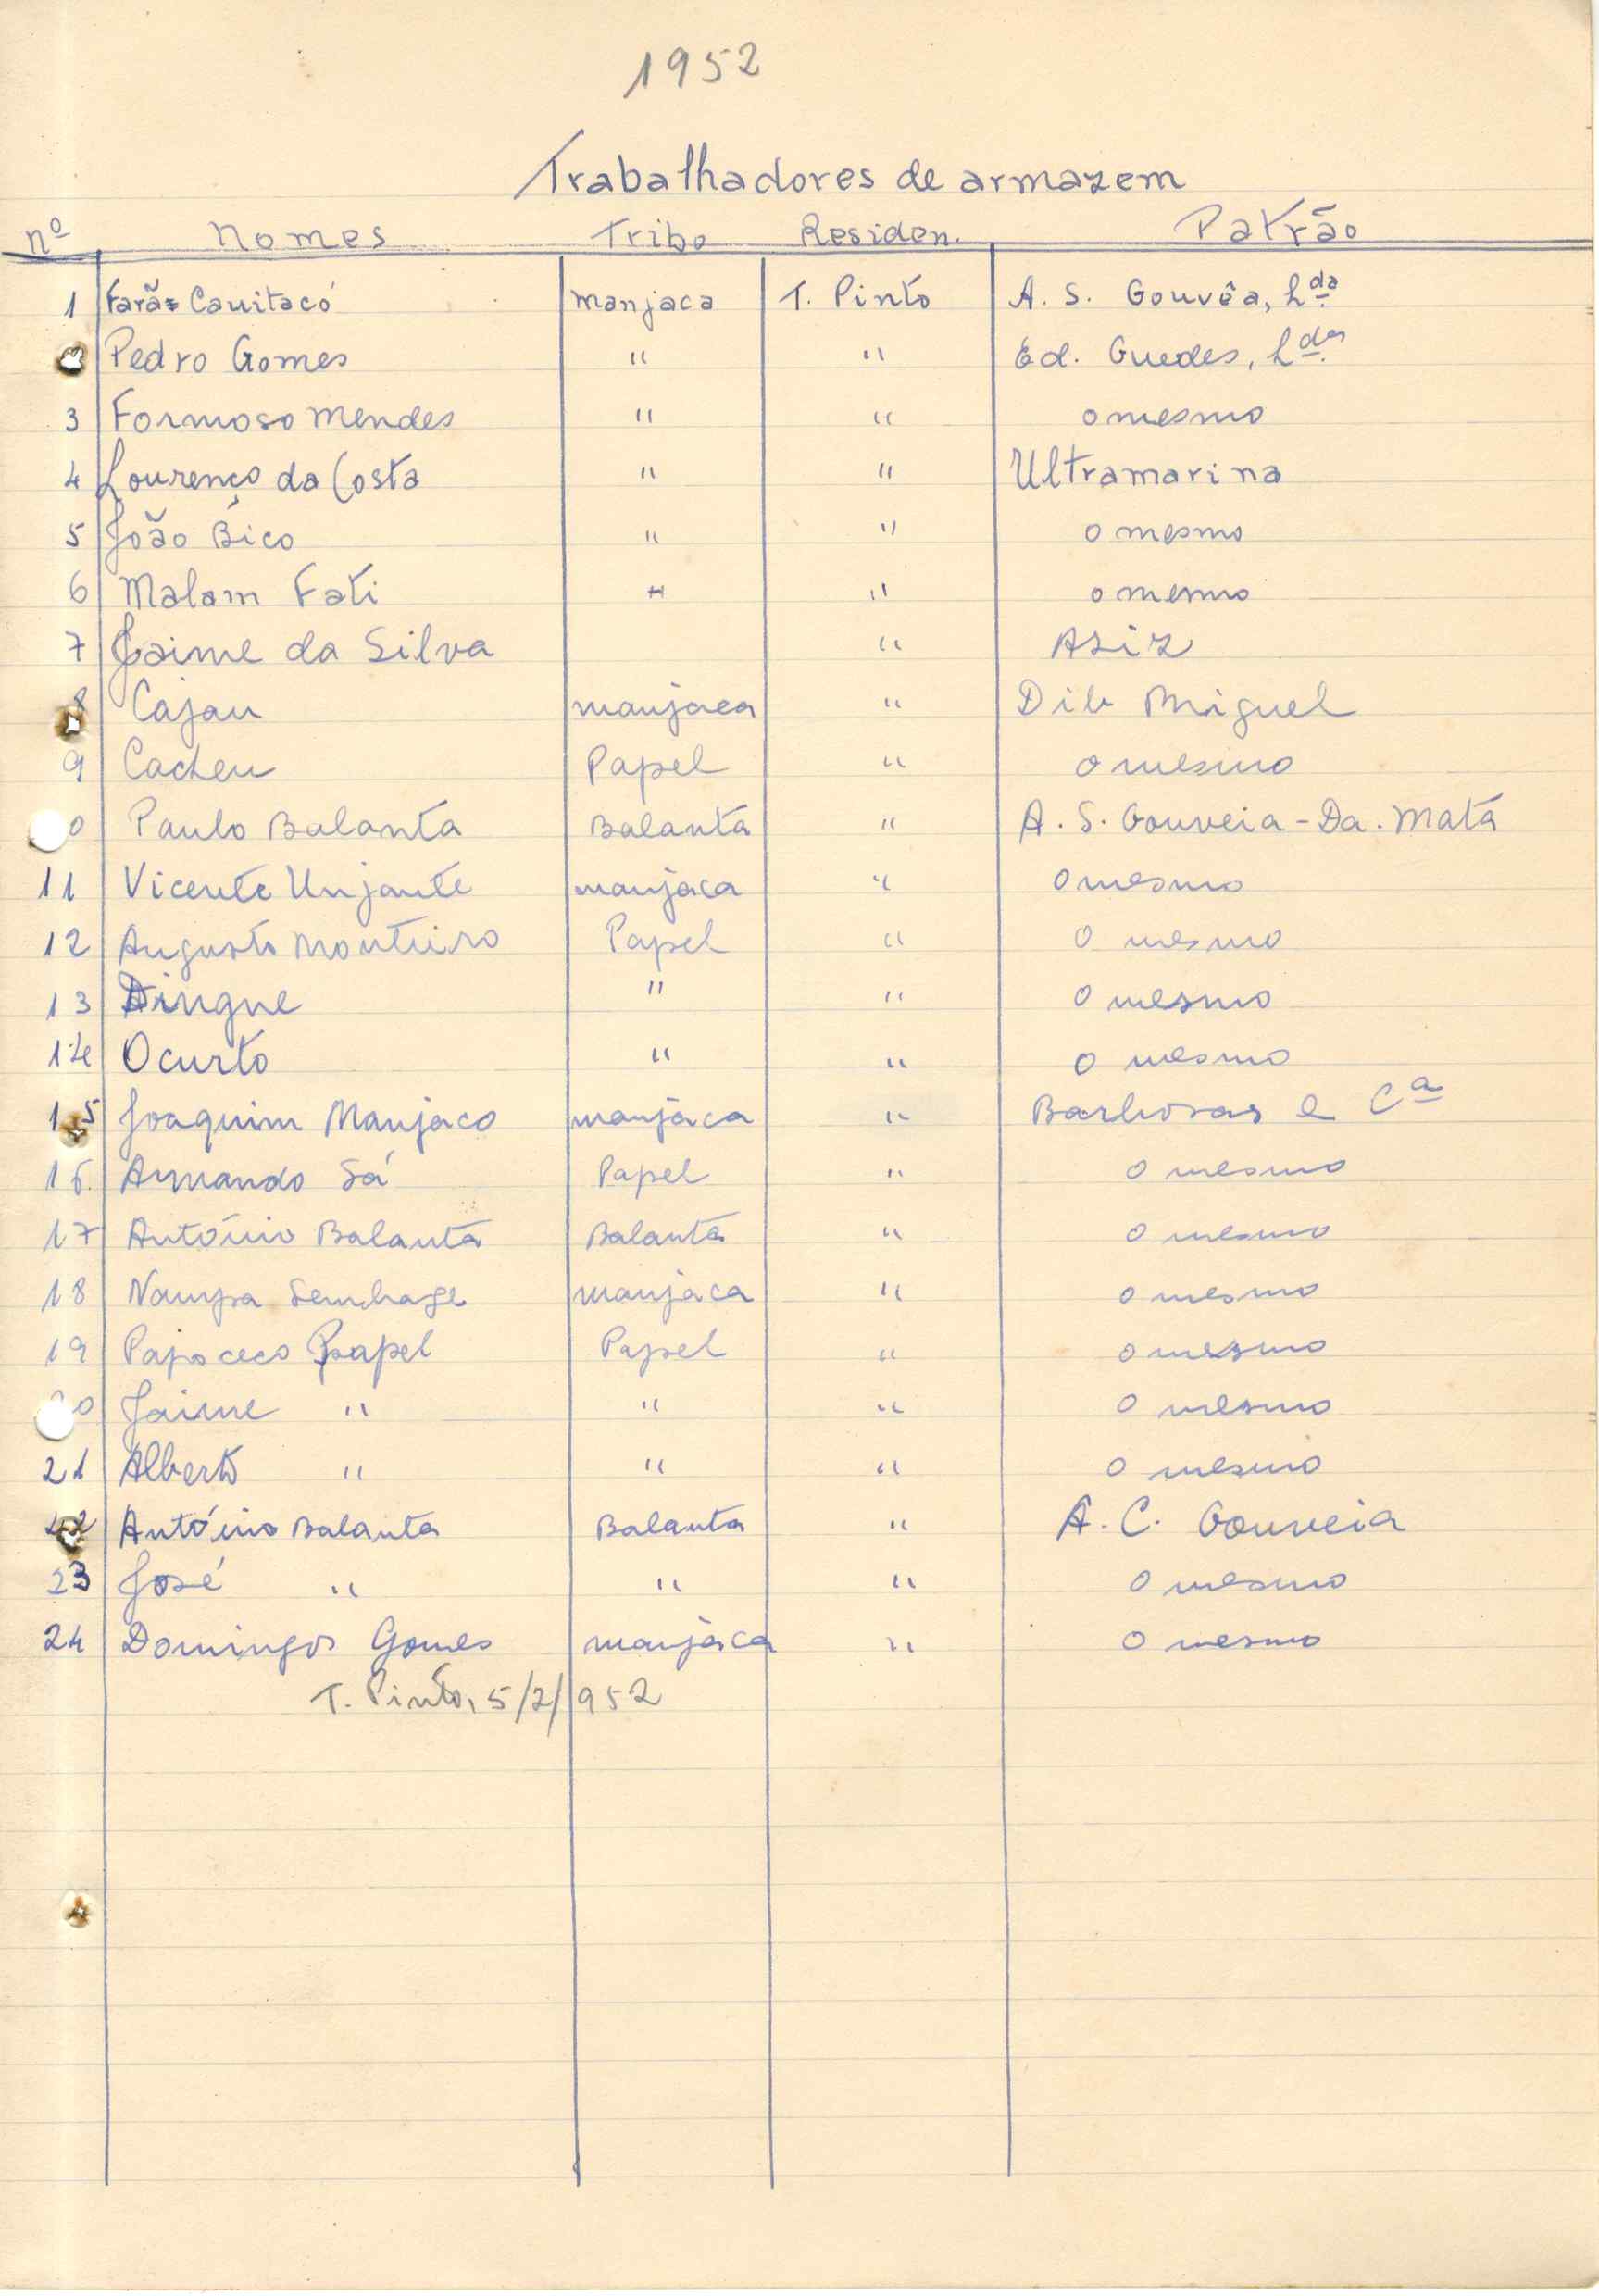 1952
Trabalhadores de armazem
nº Nomes Tribo Residen. Patrão
1 Farãs Cauitacó Manjaca T. Pinto A. S. Gouvêa, Lda
Pedro Gomes " " Ed. Guedes, Ldas
3 Formoso Mendes " " o mesmo
4 Lourenço da Costa " " Ultramarina
5 João Bico " " o mesmo
6 Malam Fati " " o mesmo
7 Jaime da Silva " Asiz
8 Cajau manjaca " Dib Miguel
9 Cacheu Papel " o mesmo
0 Paulo Balanta Balanta " A. S. Gouveia - Da. Mata
11 Vicente Unjante manjaca " o mesmo
12 Augusto Monteiro Papel " o mesmo
13 Dingue " " o mesmo
14 Ocurto " " o mesmo
15 Joaquim Manjaco manjaca " Barbosas e Cª
16 Armando Sá Papel " o mesmo
17 António Balanta Balanta " o mesmo
18 manjaca " o mesmo
19 Papel Papel " o mesmo
0 Jaime " " " o mesmo
21 Alberto " " " o mesmo
22 António Balanta Balanta " A. C. Gouveia
23 José " " " o mesmo
24 Domingos Gomes manjaca " o mesmo
T. Pinto, 5/2/952